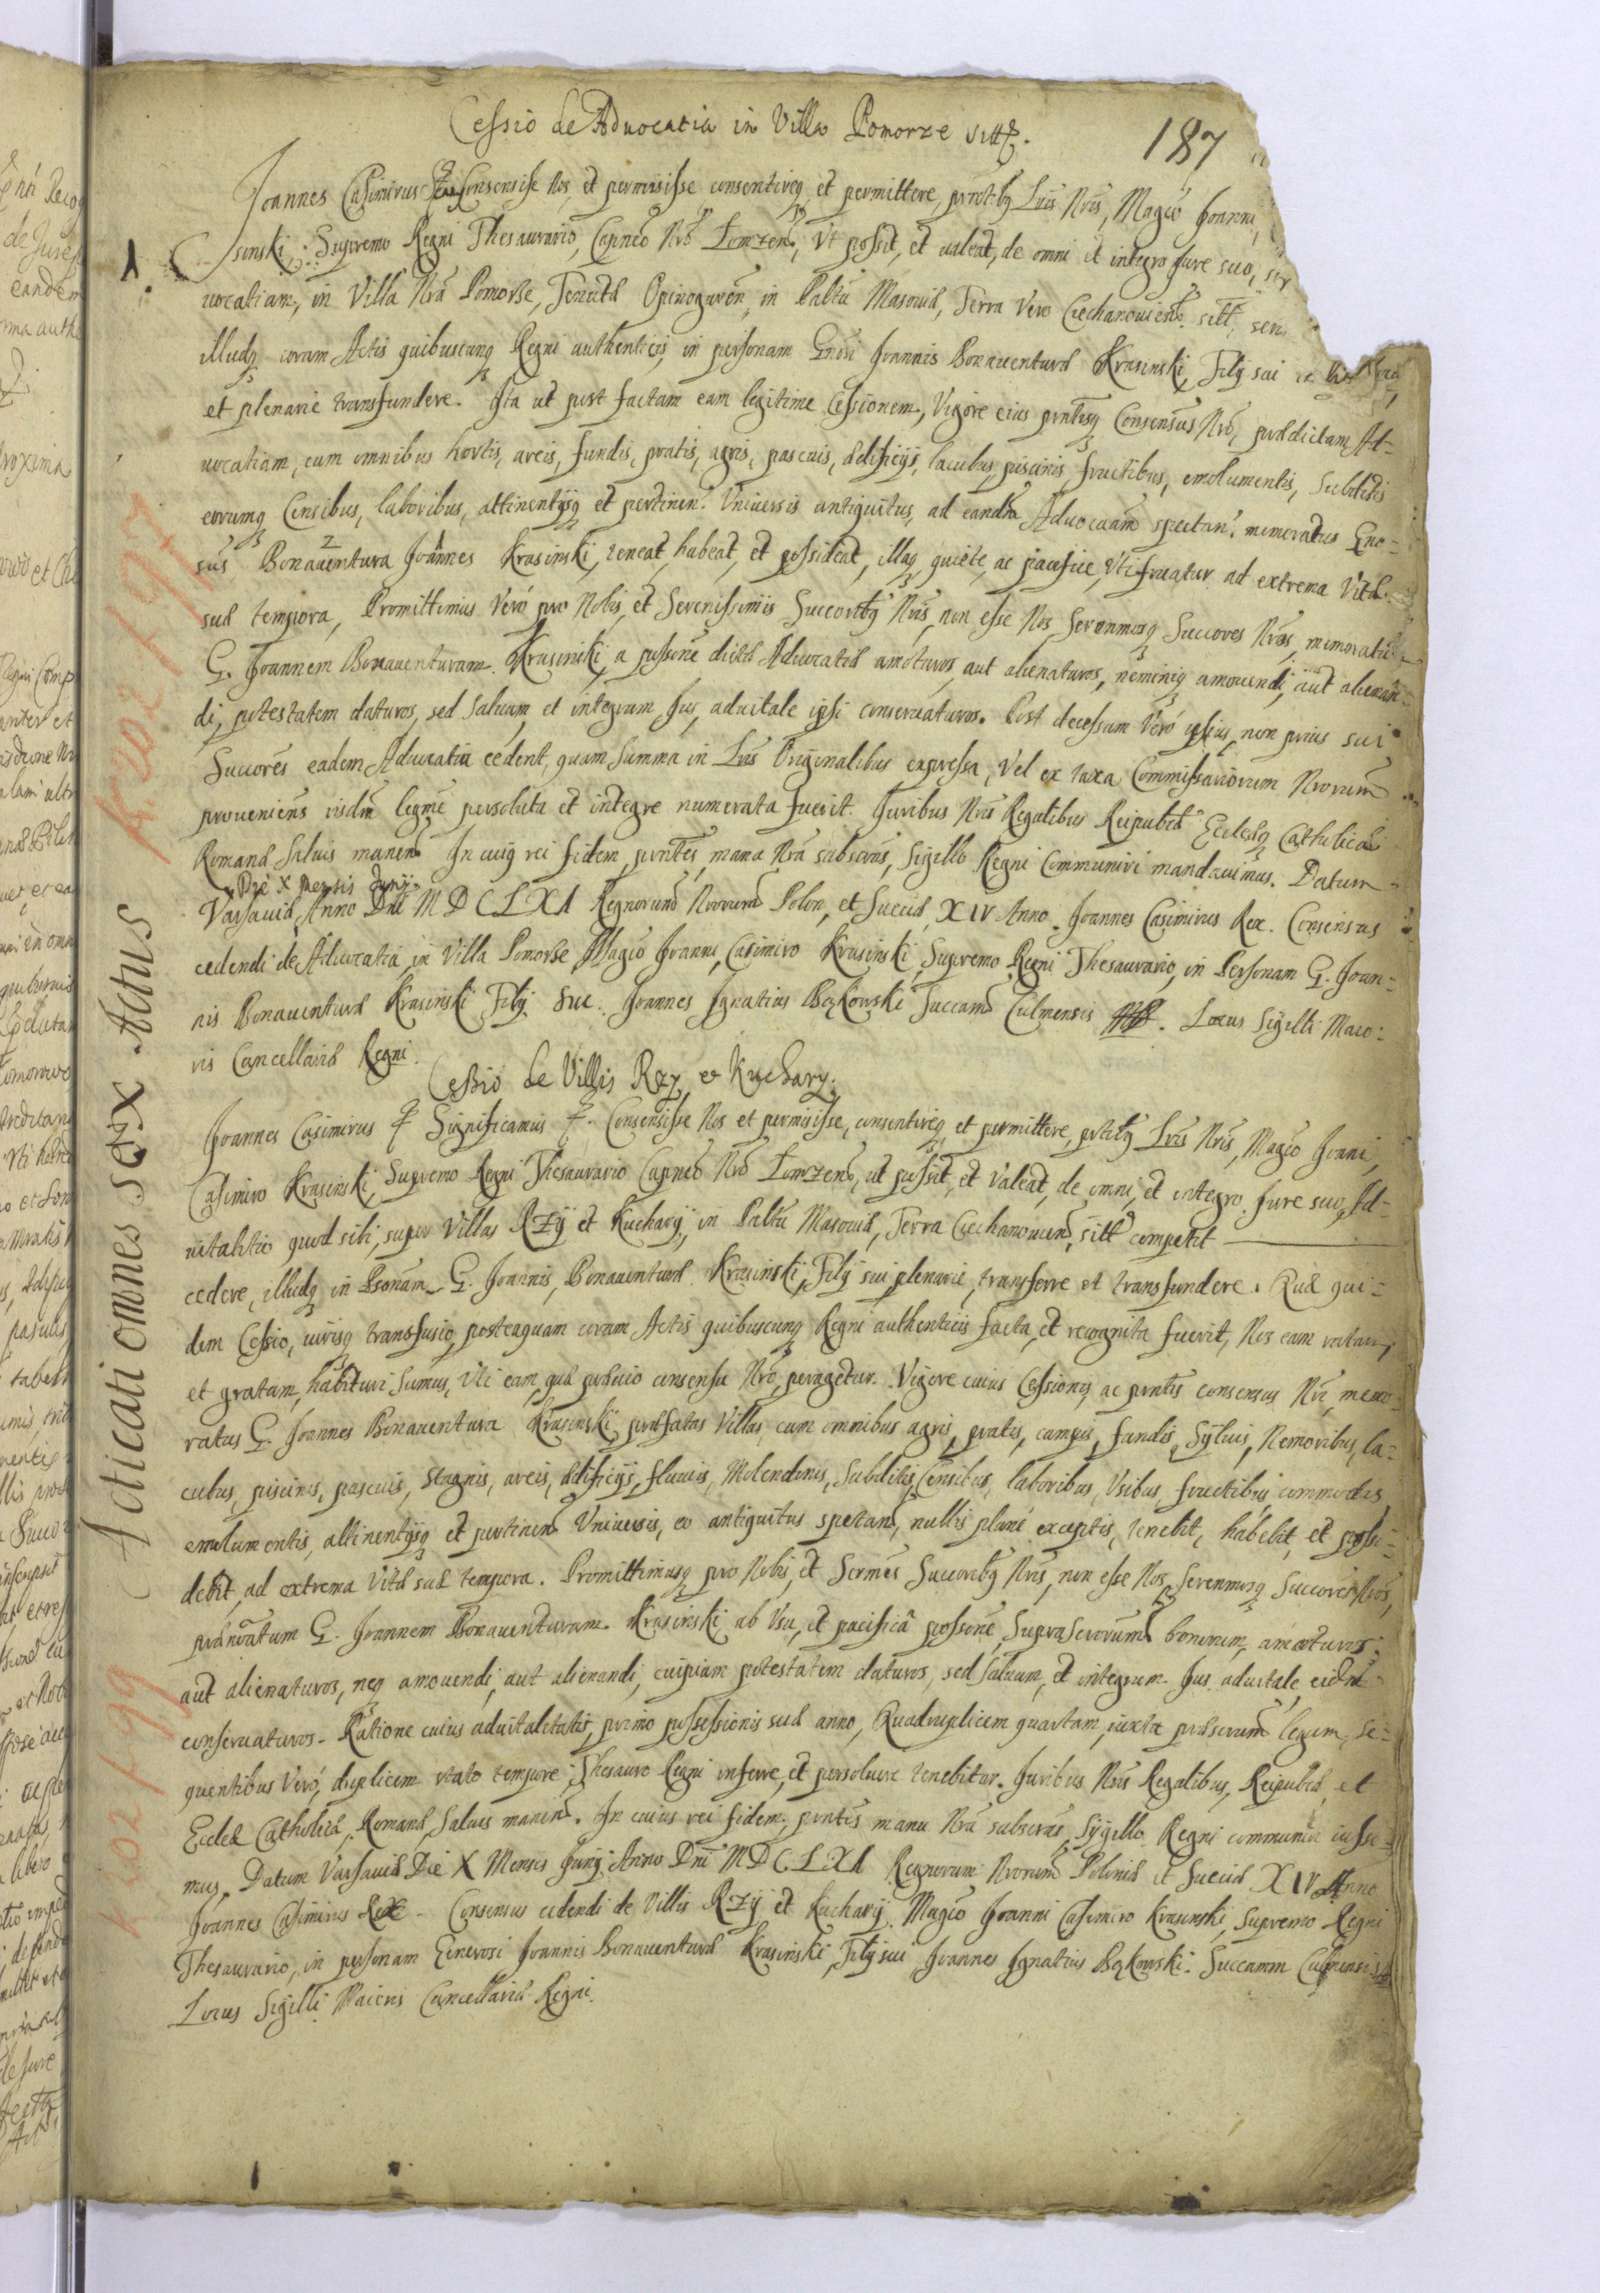 Cessio de Advocatia in Villa Pomorze sitt.
187
Joannes Casimirus etc Consensisse Nos, et permisisse consentireq, et permittere, pnttbq Lris Nris, Magco Joanni,
sinski, Supremo Regni Thesaurario, Capneo Nro Lomzen, Ut possit, et valeat, de omni et integro Jure suo,
1.
uocatiam, in Villa Nra Pomorse, Tenutæ Opinoguren, in Paltu Masouiæ, Terra Vero Ciechanouien. sitt, seu
illudq coram Actis quibuscunq Regni authenticis, in personam Gnosi Joannis Bonauenturæ Krasinski, Filij sui
et plenarie transfundere. Ita ut post factam eam legitime Cessionem, Vigore eius pntisq Consensus Nri, prædictam Ad-
uocatiam, cum omnibus hortis, areis, fundis, pratis, agris, pascuis, ædificijs, lacubus, piscinis, fructibus, emolumentis, Subditis
eorumq Censibus, laboribus, attinentijsq et pertinen. Universis antiquitus, ad eandm Aduocaam spectan. memoratus Gne-
sus Bonauentura Joannes Krasinski, teneat, habeat, et possideat, illaq, quiete, ac pacifice, Uti fruatur ad extrema Vitæ
suæ tempora, Promittimus Vero pro Nobis, et Serenissimis Succorbq Nris, non esse Nos Serenmosq Succores Nros, memoratu
G. Joannem Bonauenturam Krasinski, a possone dictæ Aduocatiæ amoturos, aut alienaturos, neminiq amouendi, aut alienan-
di, potestatem daturos, sed Saluum, et integrum Jus, aduitale ipsi conseruaturos. Post decessum Vero ipsius, non prius sui
Succores eadem Aduocatia cedent, quam Summa in Lris Originalibus expressa, Vel ex taxa Commissariorum Nrorum
proueniens iisdm legme persoluta et integre numerata fuerit. Juribus Nris Regalibus Reipubcæ Eccleæq Catholicæ
Romanæ Saluis manen. In cuiq rei fidem, pntes, manu Nra subscras, Sigillo Regni Communiri mandauimus. Datum
Die X Mensis Junij
Varsauiæ Anno Dni M D C L X I Regnorum Nrorum Polon, et Sueciæ, XIV Anno. Joannes Casimirus Rex. Consensus
cedendi de Aduocatia, in Villa Pomorse Magco Joanni, Casimiro Krasinski, Supremo Regni Thesaurario, in Personam G. Joan-
nis Bonauenturæ Krasinski Filij Sui. Joannes Ignatius Bąkowski Succam Culmensis. Locus Sigilli Maio:
ris Cancellariæ Regni.
Cessio de Villis Rzy et Kuchary.
Joannes Casimirus etc Significamus etc. Consensisse Nos et permisisse, consentireq, et permittere, pntibq Lris Nris, Magco Joani,
Casimiro Krasinski, Supremo Regni Thesaurario Capneo Nro Lomzen, ut possit, et Valeat, de omni, et integro Jure suo, Ad-
uitalitio quod sibi, super Villas Rzij et Kucharij, in Paltu Masouiæ, Terra Ciechanouien, sitt competit
cedere, illudq in Psonam G. Joannis, Bonauenturæ Krasinski, Filij sui plenarie, transferre et transfundere. Quæ qui-
dem Cessio, iurisq transfusio, posteaquam coram Actis quibuscunq Regni authenticis facta, et recognita fuerit, Nos eam ratam,
et gratam, habituri Sumus, Uti eam, quæ præuio consensu Nro, peragetur. Vigore cuius Cessionis, ac pntis consensus Nri, memo-
ratus G. Joannes Bonauentura Krasinski præfatas Villas, cum omnibus agris, pratis, campis, fundis, Syluis, Nemoribus, la-
cubus, piscinis, pascuis, stagnis, areis, ædificijs, fluuiis, Molendinis, Subditis, Censibus, laboribus, Usibus, fructibus, commodis,
emolumentis, attinentijsq et pertinen Uniuersis, eo antiquitus spectan, nullis plane exceptis, tenebit, habebit, et possi-
debit, ad extrema Vitæ suæ tempora. Promittimusq pro Nobis, et Sermis Succoribq Nris, non esse Nos, Serenmosq Succores Nros,
prænoatum G. Joannem Bonauenturam Krasinski ab Usu, et pacifica possone, Suprascrorum bonorum, amoturos,
aut alienaturos, neq amouendi, aut alienandi, cuipiam potestatem daturos, sed Saluum, et integrum Jus aduitale eidm
conseruaturos. Ratione cuius aduitalitatis, primo possessionis suæ anno, Quadruplicem quartam, iuxta præscrum legum, se-
quentibus Vero, duplicem stato tempore Thesauro Regni inferre, et persoluere tenebitur. Juribus Nris Regalibus, Reipubcæ, et
Eccleæ Catholicæ, Romanæ, Saluis manen. In cuius rei fidem, pntes manu Nra subscras, Sigillo Regni communiri iussi-
mus. Datum Varsauiæ Die X Mensis Junij Anno Dni M D C L X I Regnorum Nrorum Poloniæ et Sueciæ XIV Anno
Joannes Casimirus Rex. Consensus cedendi de Villis Rzij et Kucharij Magco Joanni Casimiro Krasinski, Supremo Regni
Thesaurario, in personam Generosi Joannis Bonauenturæ Krasinski, Filij sui Joannes Ignatius Bąkowski. Succamm Culmensis
Locus Sigilli Maioris Cancellariæ Regni.
Acticationes sex Actus
k 202 f 97
k 202 f 99